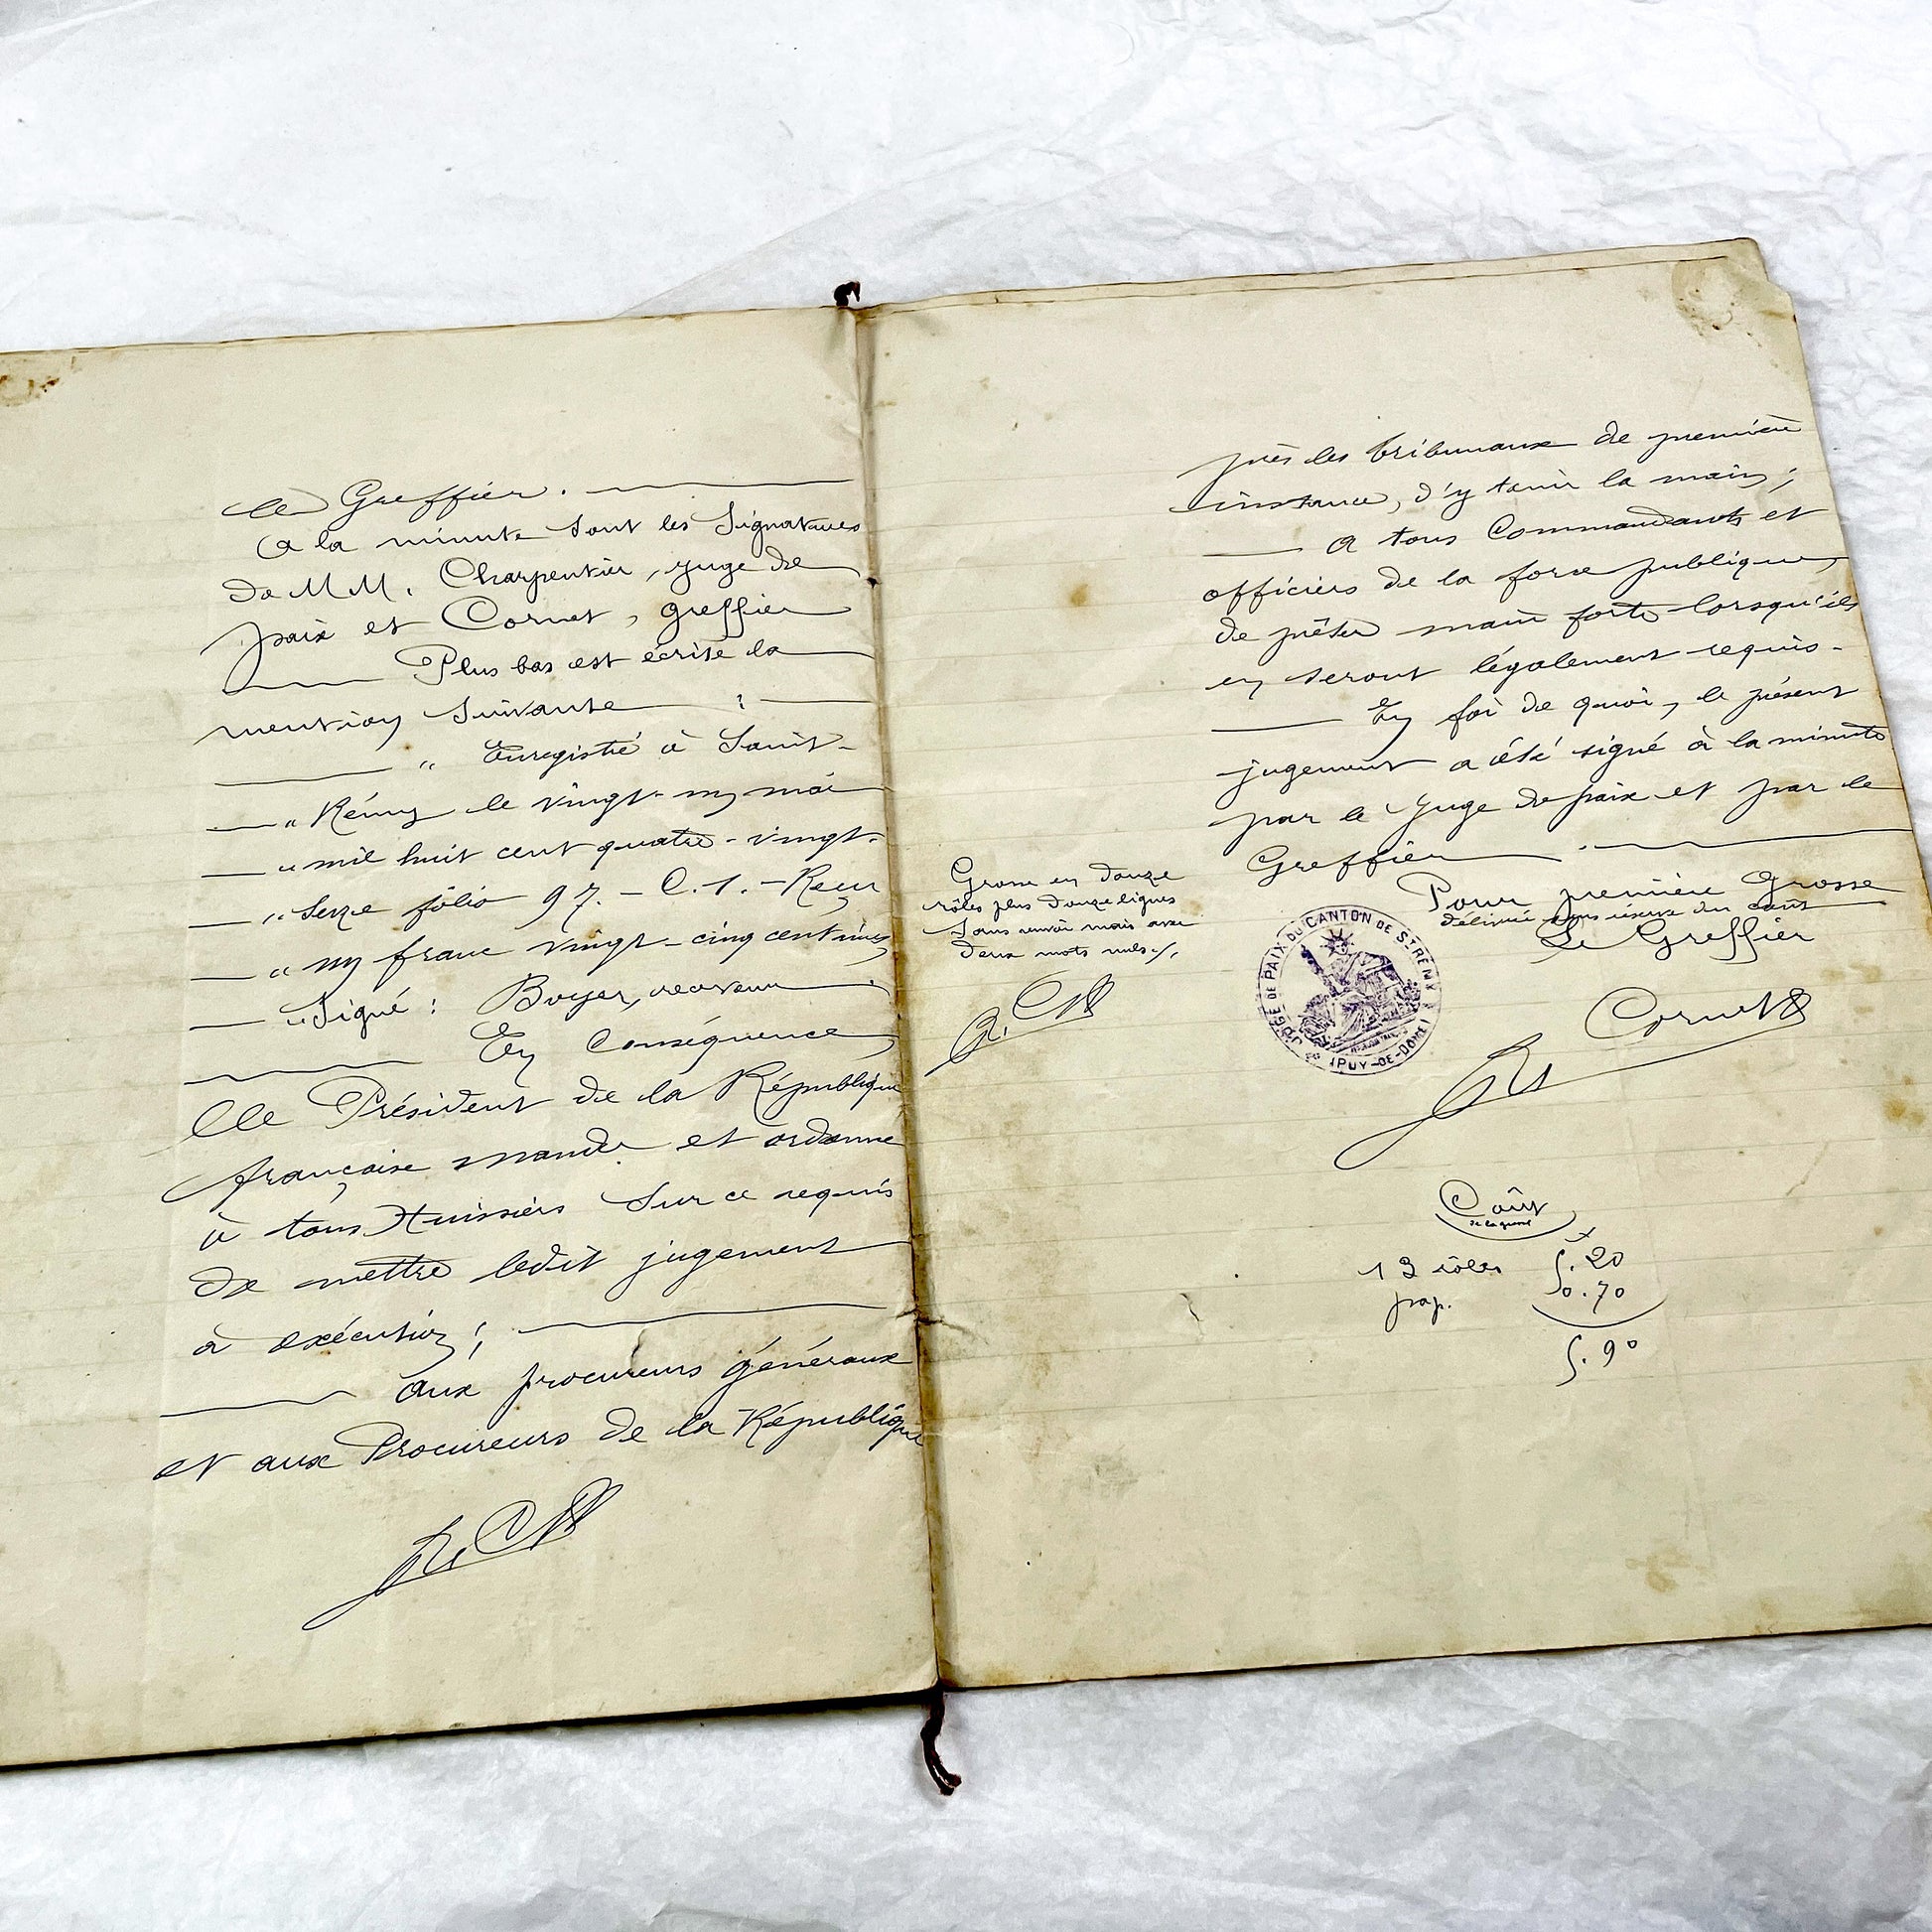 le Greffier.
A la minute sont les signatures
de MM. Charpentier, juge de
paix et Cornet, greffier
Plus bas est écrite la
mention suivante :
" Enregistré à Saint-
" Rémy le vingt-un mai
" mil huit cent quatre-vingt-
" seize folio 97. - C. 1. - Reçu
" un franc vingt-cinq centimes
" Signé : Boyer, receveur
En Conséquence,
Le Président de la République
française mande et ordonne
à tous Huissiers sur ce requis
de mettre ledit jugement
à exécution ;
Aux procureurs généraux
et aux Procureurs de la République
près les tribunaux de première
instance, d'y tenir la main ;
A tous Commandants et
officiers de la force publique,
de prêter main forte lorsqu'ils
en seront légalement requis.
En foi de quoi, le présent
jugement a été signé à la minute
par le Juge de paix et par le
Greffier.
Pour première Grosse
délivrée sous réserve du coût
Le Greffier
Cornet
Grosse en douze
rôles plus douze lignes
sans renvoi mais avec
deux mots nuls ./.
JUGE DE PAIX DU CANTON DE ST RÉMY
(PUY-DE-DÔME)
Coût
de la grosse
13 rôles 5.20
pap. 0.70
5.90